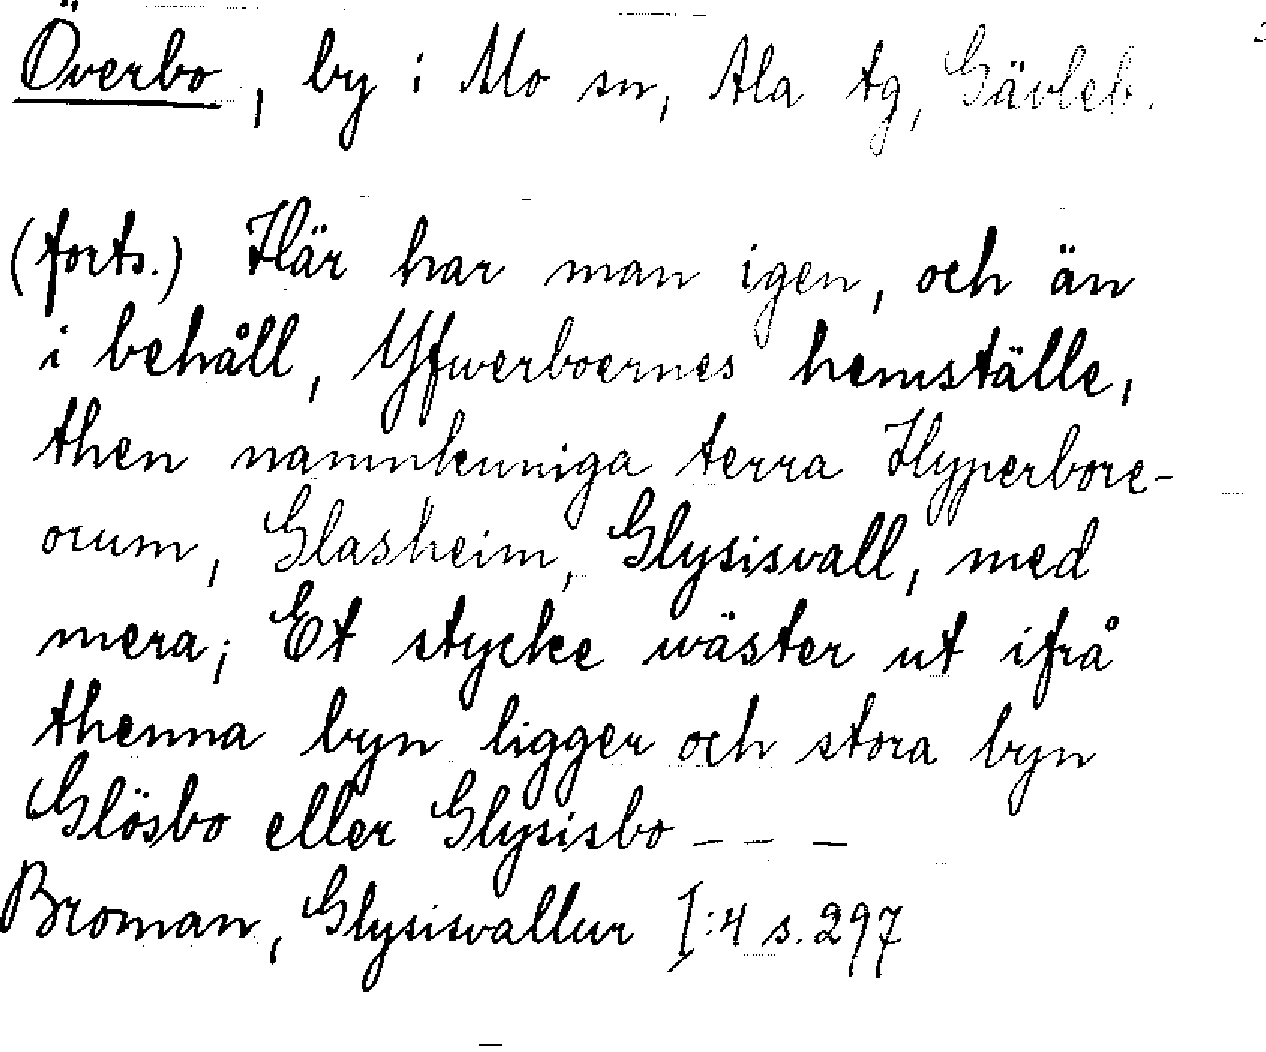 Överbo, by i Mo sn, Ala tg, Gävleb.
(forts.) Här har man igen, och än
i behåll, Yfwerboernes hemställe,
then namnkunniga terra Hyperbore-
orum, Glasheim, Glysisvall, med
mera; Et stycke wäster ut ifrå
thenna byn ligger och stora byn
Glösbo eller Glysisbo - - -
Broman, Glysisvallur I:4 s. 297